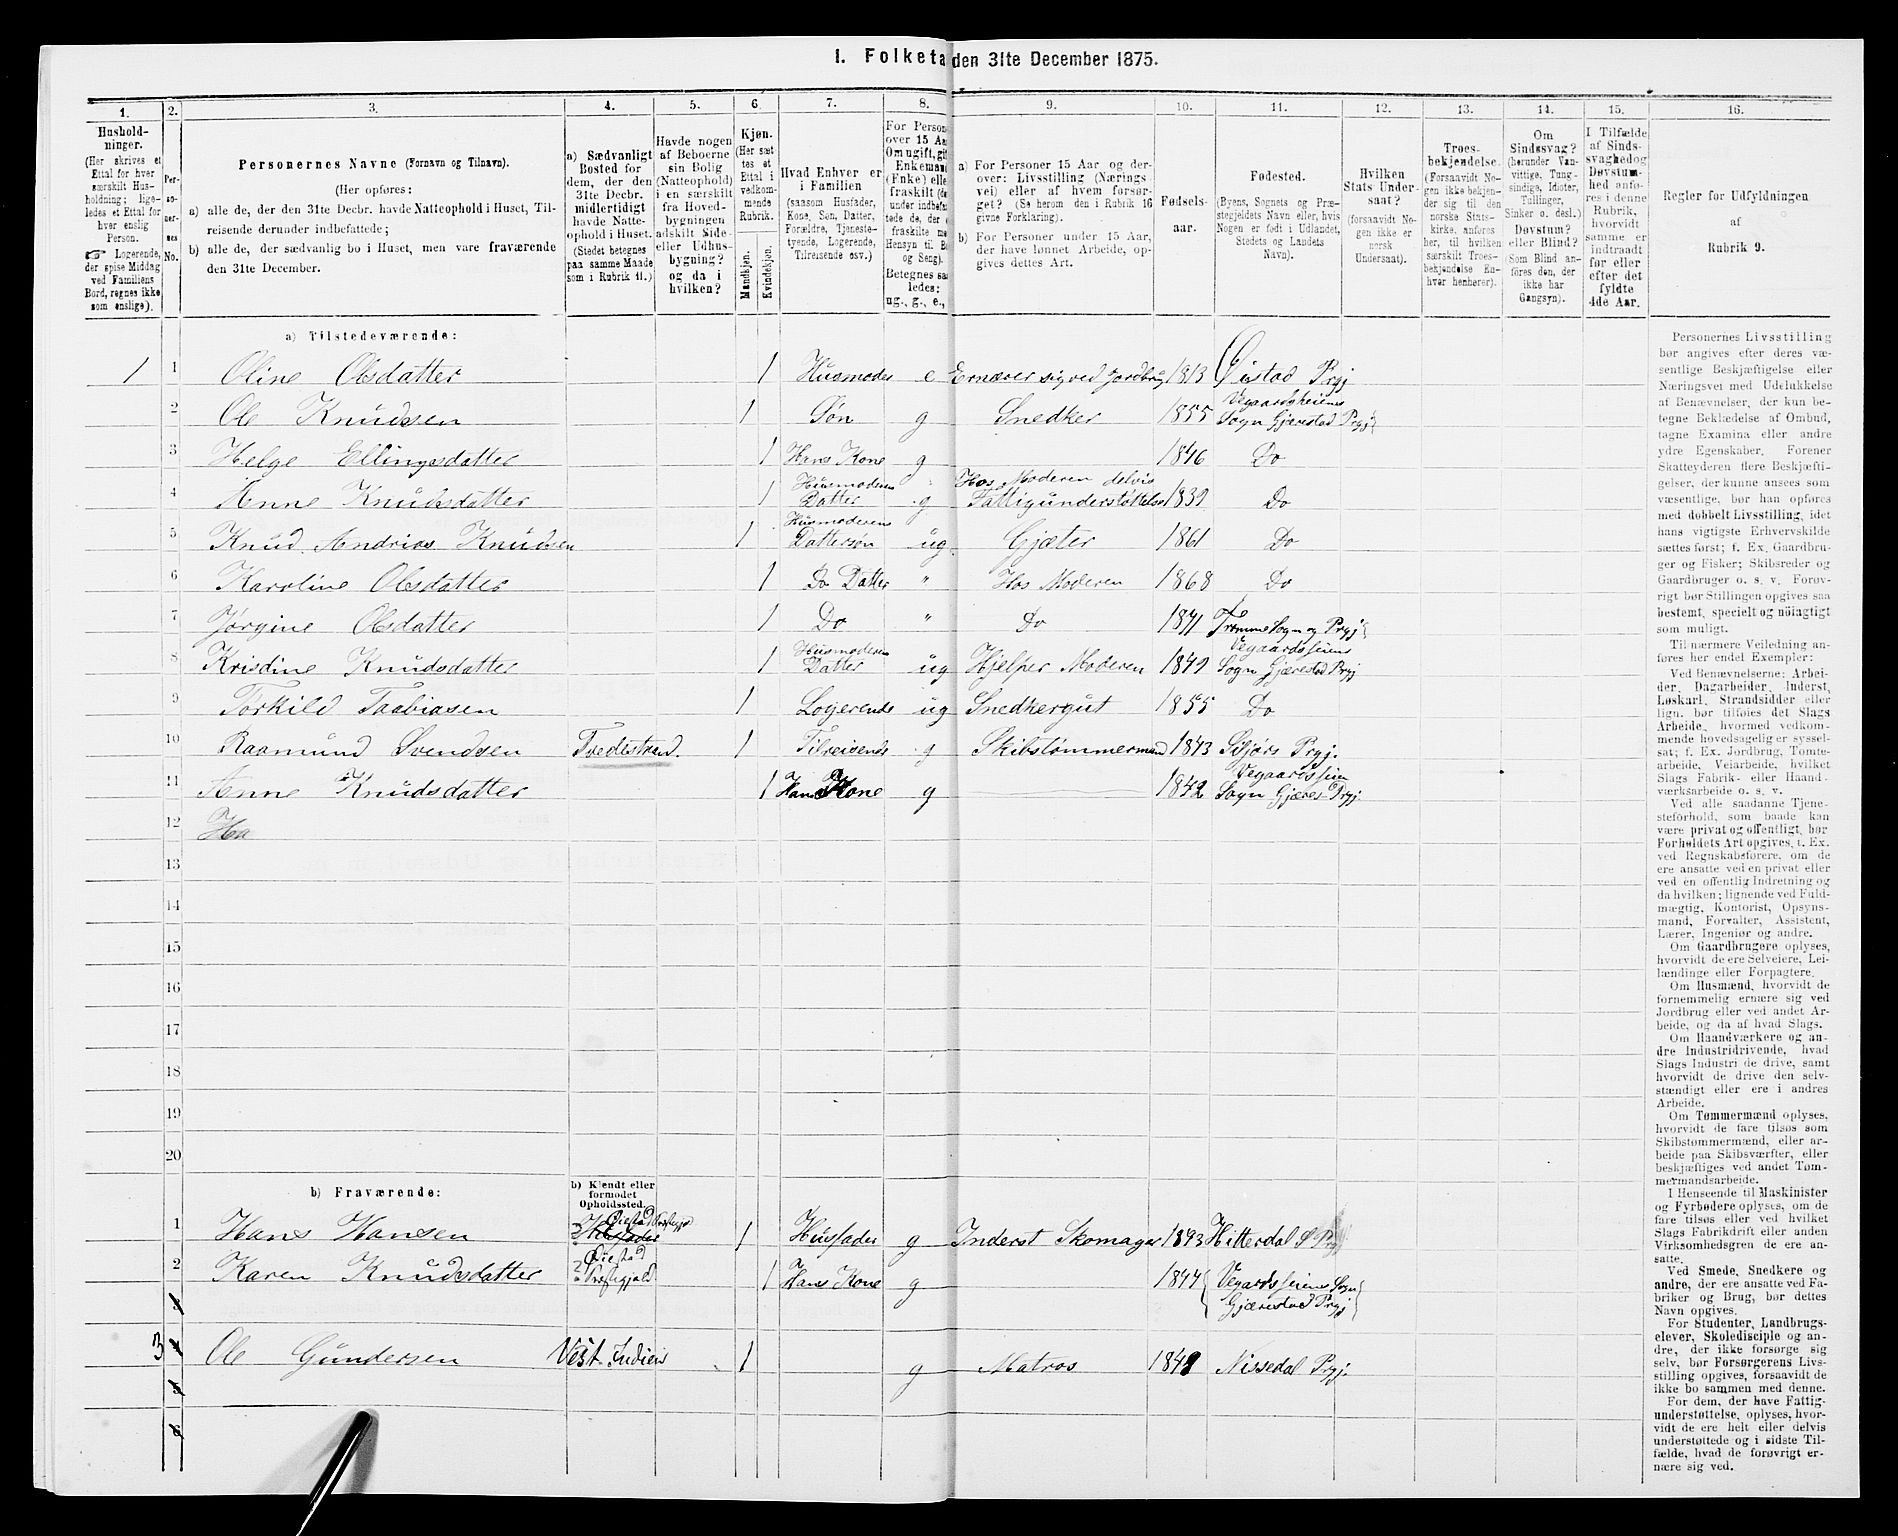 I. Folketa den 31te December 1875.
1. 2. 3. 4. 5. 6. 7. 8. 9. 10. 11. 12. 13. 14. 15. 16.
Hushold-
ninger.
(Her skrives et
Ettal for hver
særskilt Hus-
holdning; lige-
ledes et Ettal for
hver enslig
Person.
☞ Logerende,
der spise Middag
ved Familiens
Bord, regnes ikke
som enslige).
Per-
so-
ner-
nes
No.
Personernes Navne (Fornavn og Tilnavn).
(Her opføres:
a) alle de, der den 31te Decbr. havde Natteophold i Huset, Til-
reisende derunder indbefattede;
b) alle de, der sædvanlig bo i Huset, men vare fraværende
den 31te December.
a) Sædvanligt
Bosted for
dem, der den
31te Decbr.
midlertidigt
havde Natte-
ophold i Huset.
(Stedet betegnes
paa samme Maade
som i Rubrik 11.)
Havde nogen
af Beboerne
sin Bolig
(Natteophold)
i en særskilt
fra Hoved-
bygningen
adskilt Side-
eller Udhus-
bygning?
og da i
hvilken?
Kjøn.
(Her sæt-
tes et
Ettal i
vedkom-
mende
Rubrik.
Mandkjøn.
Kvindekjøn.
Hvad Enhver er
i Familien
(saasom Husfader,
Kone, Søn, Datter,
Forældre, Tjeneste-
tyende, Logerende,
Tilreisende osv.)
For Person
over 15 Aa
Om ugift, gif
Enkemand
(Enke) elle
fraskilt (de
under indbefat
tede de, der e
fraskilte me
Hensyn til B
og Seng).
Betegnes saa
ledes:
ug., g., e.,
a) For Personer 15 Aar og der-
over: Livsstilling (Nærings-
vei) eller af hvem forsør-
get? (Se herom den i Rubrik 16
givne Forklaring).
b) For Personer under 15 Aar,
der have lønnet Arbeide, op-
gives dettes Art.
Fødsels-
aar.
Fødested.
(Byens, Sognets og Præ-
stegjeldets Navn eller, hvis
Nogen er født i Udlandet,
Stedets og Landets
Navn).
Hvilken
Stats Under-
saat?
(forsaavidt No-
gen ikke er
norsk
Undersaat).
Troes-
bekjendelse.
(Forsaavidt No-
gen ikke bekjen-
der sig til den
norske Stats-
kirke, anføres
her, til hvilken
særskilt Troes-
bekjendelse En-
hver henhører).
Om
Sindssvag?
(herunder Van-
vittige, Tung-
sindige, Idioter,
Sinker o. desl.)
Døvstum?
eller Blind?
(Som Blind an-
føres den, der
ikke har
Gangsyn).
I Tilfælde
af Sinds-
svaghed og
Døvstum-
hed anfø-
res i denne
Rubrik,
hvorvidt
samme er
indtraadt
før eller
efter det
fyldte
4de Aar.
Regler for Udfyldningen
af
Rubrik 9.
a) Tilstedeværende:
1 1 Oline Olsdatter 1 Husmoder e Ernærer sig ved Jordbrug 1813 Øistad Prgj
2 Ole Knudsen 1 Søn g Snedker 1855 Vegaardsheiens Sogn Gjærestad Prgj
3 Helge Ellingsdatter 1 Hans Kone g 1846 Do
4 Anne Knudsdatter 1 Husmoderens Datter g Hos Moderen delvis Fattigunderstøttelse 1839 Do
5 Knud Andrias Knudsen 1 Husmoderens Dattersøn ug Gjæter 1861 Do
6 Karoline Olsdatter 1 Do Datter " Hos Moderen 1868 Do
7 Jørgine Olsdatter 1 Do " Do 1871 Tromø Sogn og Prgj
8 Krisdine Knudsdatter 1 Husmoderens Datter ug Hjelper Moderen 1849 Vegaardsheiens Sogn Gjærestad Prgj
9 Torkild Taabiasen 1 Logerende ug Snedkergut 1855 Do
10 Raamund Svendsen Tvedestrand. 1 Tilreisende g Skibstømmermand 1843 Prgj.
11 Anne Knudsdatter 1 Hans Kone g 1842 Vegaardsheien Sogn Gjæres Prgj.
12 Ha
13
14
15
16
17
18
19
20
b) Fraværende:
b) Kjendt eller
formodet
Opholdssted.
1 Hans Hansen Øiestad 1 Husfader g Inderst Skomager 1843 Hitterdal Prgj
2 Karen Knudsdatter Øiestad Prestegjeld 1 Hans Kone g 1844 Vegaardsheiens Sogn Gjærestad Prgj
3
3 4 Ole Gundersen Vest Indien 1 g Matros 1848 Nissedal Prgj.
5
6
Personernes Livsstilling
bør angives efter deres væ-
sentlige Beskjæftigelse eller
Næringsvei med Udelukkelse
af Benævnelser, der kun be-
tegne Beklædelse af Ombud,
tagne Examina eller andre
ydre Egenskaber. Forener
Skatteyderen flere Beskjæfti-
gelser, der kunne ansees som
væsentlige, bør han opføres
med dobbelt Livsstilling, idet
hans vigtigste Erhvervskilde
sættes først; f. Ex. Gaardbru-
ger og Fisker; Skibsreder og
Gaardbruger o. s. v. Forøv-
rigt bør Stillingen opgives saa
bestemt, specielt og nøiagtigt
som muligt.
Til nærmere Veiledning an-
føres her endel Exempler:
Ved Benævnelserne: Arbei-
der, Dagarbeider, Inderst,
Løskarl, Strandsidder eller
lign. bør tilføies det Slags
Arbeide, hvormed vedkom-
mende hovedsagelig er syssel-
sat; f. Ex. Jordbrug, Tomte-
arbeide, Veiarbeide, hvilket
Slags Fabrik- eller Haand-
værksarbeide o. s. v.
Ved alle saadanne Tjene-
steforhold, som baade kan
være privat og offentligt, bør
Forholdets Art opgives, t. Ex.
ved Regnskabsførere, om de
ere ansatte ved en privat eller
ved en offentlig Indretning og
da hvilken; lignende ved Fuld-
mægtig, Kontorist, Opsyns-
mand, Forvalter, Assistent,
Lærer, Ingeniør og andre.
Om Gaardbrugere oplyses,
hvorvidt de ere Selveiere, Lei-
lændinge eller Forpagtere.
Om Husmænd, hvorvidt de
fornemmelig ernære sig ved
Jordbrug eller ved andet Ar-
beide, og da af hvad Slags.
Om Haandværkere og an-
dre Industridrivende, hvad
Slags Industri de drive, samt
hvorvidt de drive den selv-
stændigt eller ere i andres
Arbeide.
Om Tømmermænd oplyses,
hvorvidt de fare tilsøs som
Skibstømmermænd, eller ar-
beide paa Skibsværfter, eller
beskjæftiges ved andet Tøm-
mermandsarbeide.
I Henseende til Maskinister
og Fyrbødere oplyses, om de
fare tilsøs eller ved hvilket
Fabrikdrift eller anden
Virksomhedsgren de ere an-
satte.
Ved Smede, Snedkere og
andre, der ere ansatte ved Fa-
briker og Brug, bør dettes
Navn opgives.
For Studenter, Landbrugs-
elever, Skoledisciple og an-
dre, der ikke forsørge sig
selv, bør Forsørgerens Livs-
stilling opgives, forsaavidt de
ikke bo sammen med denne.
For dem, der have Fattig-
understøttelse, oplyses, hvor-
vidt de ere helt eller delvis
understøttede og i sidste Til-
fælde, hvad de forøvrigt er-
nære sig ved.